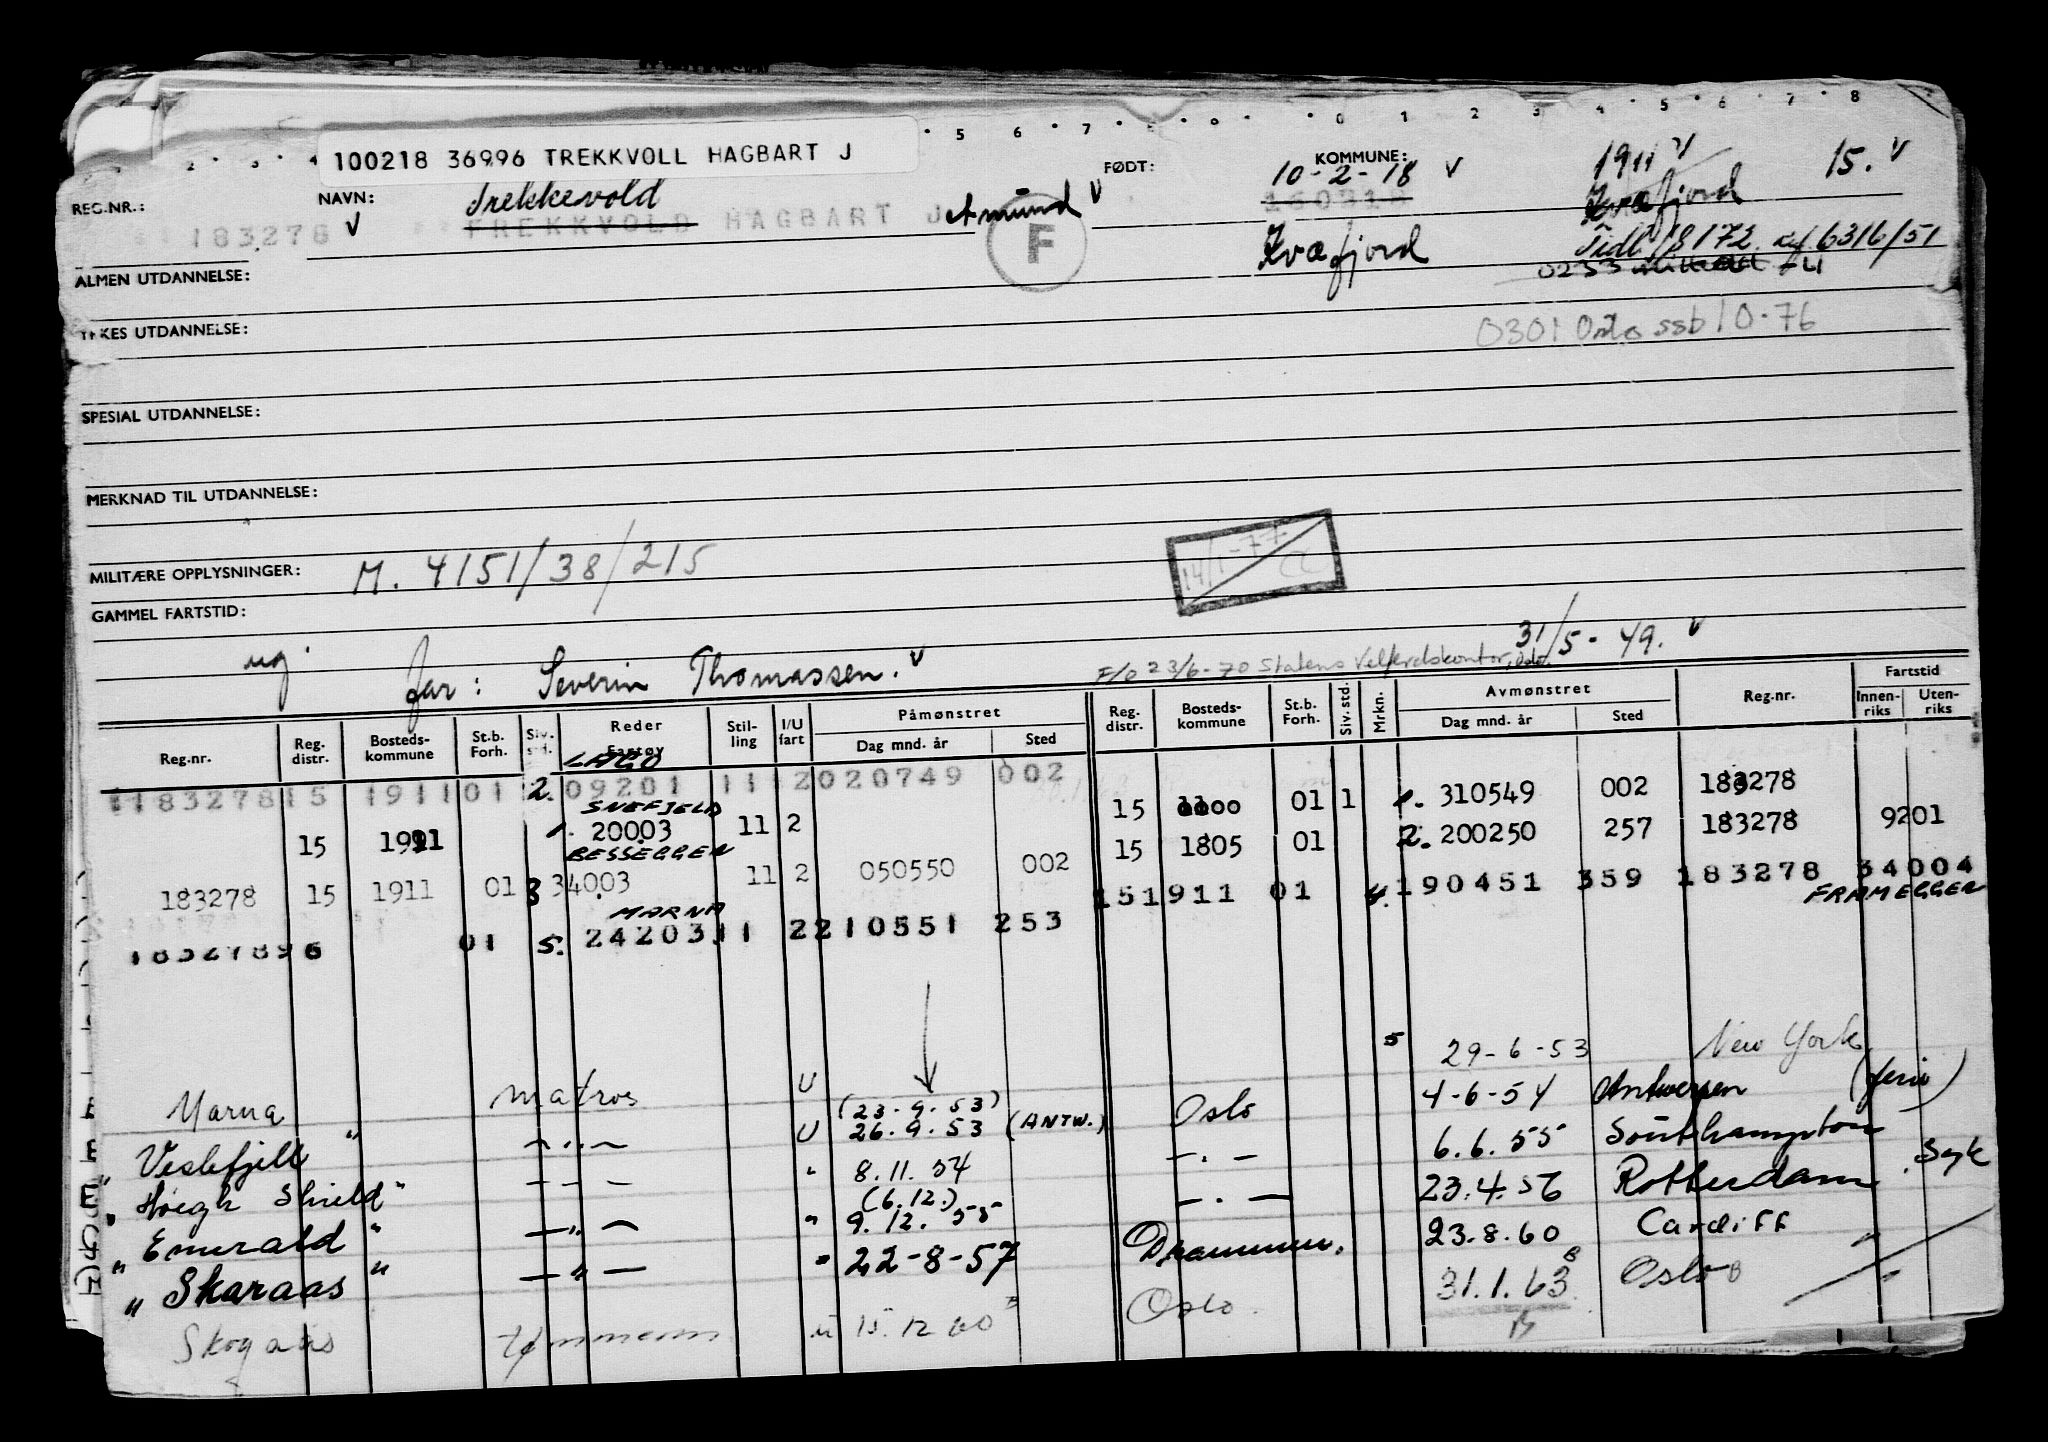 2 3 4 5 6 7 8 9 0 1 2 3 4 5 6 7 8
100218 36996 TREKKVOLL HAGBART J
FØDT: 10-2-18 v KOMMUNE: 1911 v 15. v
REG.NR.: NAVN: Trekkevold
183278 v TREKKVOLD HAGBART J Amund v 150318 Kvæfjord
F Kvæfjord Tidl. 18172 6316/51
ALMEN UTDANNELSE: 0253
YRKES UTDANNELSE: 0301 Oslo ssb 10-76
SPESIAL UTDANNELSE:
MERKNAD TIL UTDANNELSE:
14/1-77
MILITÆRE OPPLYSNINGER: M. 4151/38/215
GAMMEL FARTSTID:
ug. far: Severin Thomassen. v F/o 23/6-70 Statens Velferdskontor, Oslo. 31/5-49. v
Reg.nr. Reg. distr. Bosteds-kommune St.b. Forh. Siv. std. Reder Fartøy Stil-ling I/U fart Påmønstret Dag mnd. år Sted Reg. distr. Bosteds-kommune St.b. Forh. Siv.std. Mrkn. Avmønstret Dag mnd. år Sted Reg.nr. Fartstid Innen-riks Uten-riks
LAGO
183278 15 1911 01 2. 09201 11 2 020749 002 15 01 1 1. 310549 002 183278
SNEFJELD
15 1911 1. 20003 11 2 15 1805 01 2. 200250 257 183278 9201
BESSEGGEN
183278 15 1911 01 3 34003 11 2 050550 002 15 1911 01 4. 190451 359 183278 34004
MARNA FRAMEGGEN
183278 96 01 5. 24203 11 2 210551 253
5 29-6-53 New York
Marna matros U (23.9.53) Oslo 4-6-54 Antwerpen (ferie)
" Veslefjell " — " — U 26.9.53 (ANTW.) — . — 6.6.55 Southampton
" Høegh Shield " — — — " 8.11.54 — . — 23.4.56 Rotterdam Syk
(6.12.)
" Emerald " — " — " 9.12.55 Drammen. 23.8.60 Cardiff "
" Skaraas " — " — " 22-8-57 Oslo. 31.1.63 B Oslo B "
Skogaas tømmerm u 15.12 60 B B